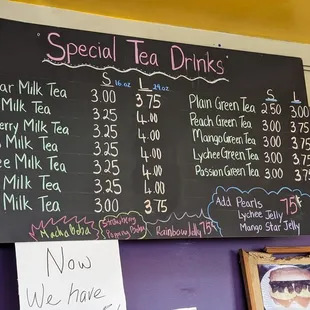 "Special Tea Drinks"
S 16 oz L 24 oz
Milk Tea 3.00 3.75
Milk Tea 3.25 4.00
Milk Tea 3.25 4.00
Milk Tea 3.25 4.00
Milk Tea 3.25 4.00
Milk Tea 3.25 4.00
Milk Tea 3.00 3.75
S L
Plain Green Tea 2.50 3.00
Peach Green Tea 3.00 3.75
Mango Green Tea 3.00 3.75
Lychee Green Tea 3.00 3.75
Passion Green Tea 3.00 3.75
Add Pearls 75¢
Lychee Jelly
Mango Star Jelly
Matcha boba
Strawberry
Rainbow Jelly 75¢
Now
We have